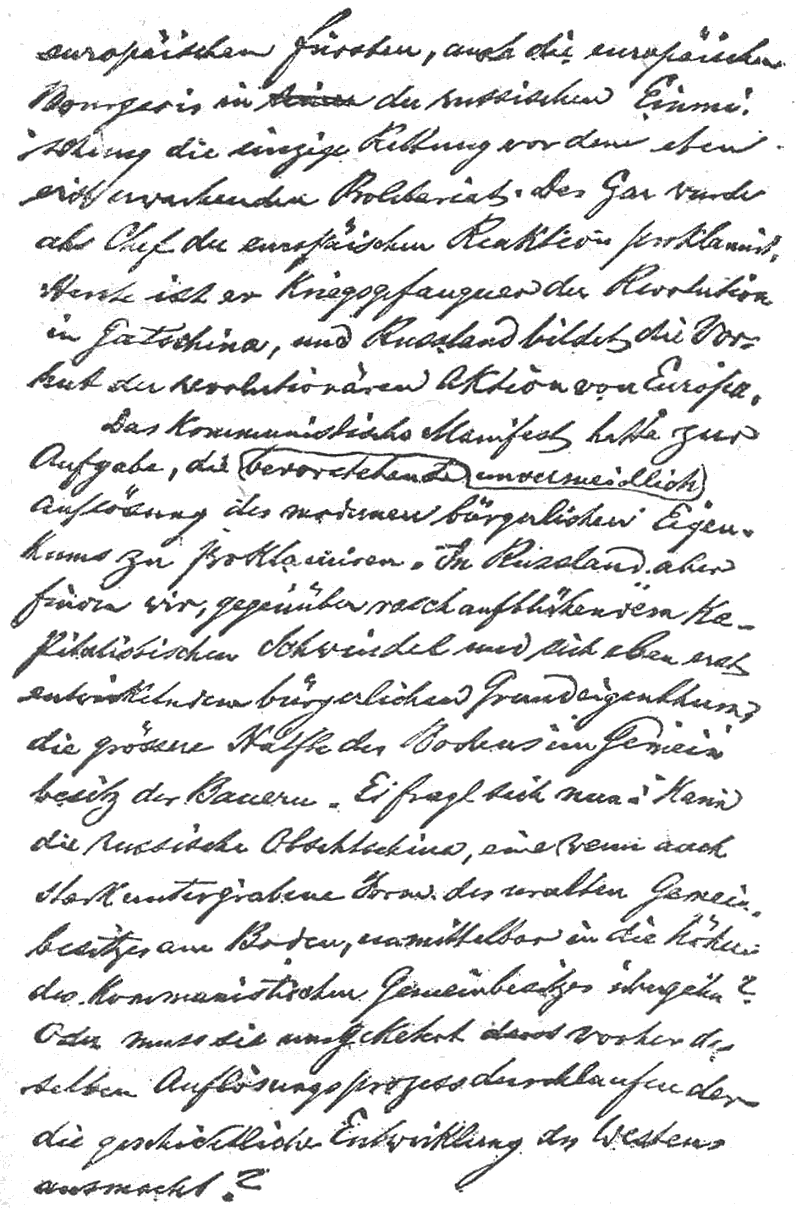 europäischen Fürsten, auch die europäischen
Bourgeois in der russischen Einmi-
schung die einzige Rettung vor dem eben
erst erwachenden Proletariat. Der Zar wurde
als Chef der europäischen Reaktion proklamirt.
Heute ist er Kriegsgefangner der Revolution
in Gatschina, und Russland bildet die Vor-
hut der revolutionären Aktion von Europa.
Das Kommunistische Manifest hatte zur
Aufgabe, die bevorstehende unvermeidlich
Auflösung des modernen bürgerlichen Eigen-
thums zu proklamiren. In Russland aber
finden wir, gegenüber rasch aufblühendem ka-
pitalistischen Schwindel und sich eben erst
entwickelndem bürgerlichen Grundeigenthum,
die grössere Hälfte des Bodens im Gemein
besitz der Bauern. Es fragt sich nun: Kann
die russische Obschtschina, eine wenn auch
stark untergrabene Form des uralten Gemein-
besitzes am Boden, unmittelbar in die höhere
des kommunistischen Gemeinbesitzes übergehn?
Oder muss sie umgekehrt vorher den
selben Auflösungsprozess durchlaufen der
die geschichtliche Entwicklung des Westens
ausmacht?